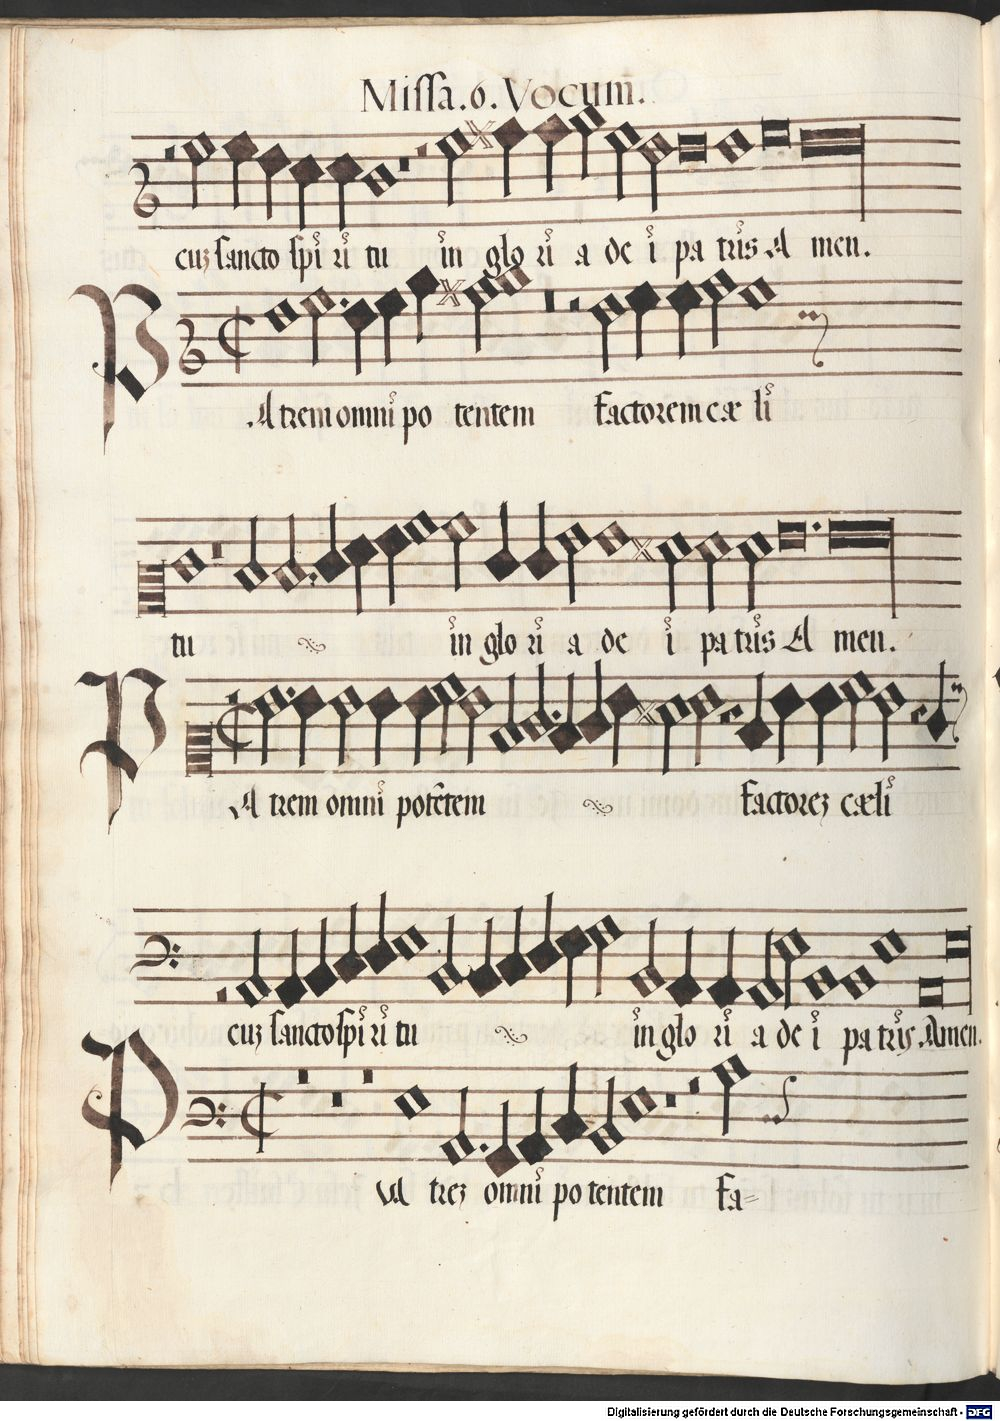 Missa.6.Vocum.
cuz sancto spiritu in gloria dei patris Amen.
PAtrem omnipotentem Factorem cæli
tu in gloria dei patris Amen.
PAtrem omnipotētem factorez cæli
cuz sancto spiritu in gloria dei patris Amen.
PAtrez omnipotentem Fa=
Digitalisierung gefördert durch die Deutsche Forschungsgemeinschaft - DFG